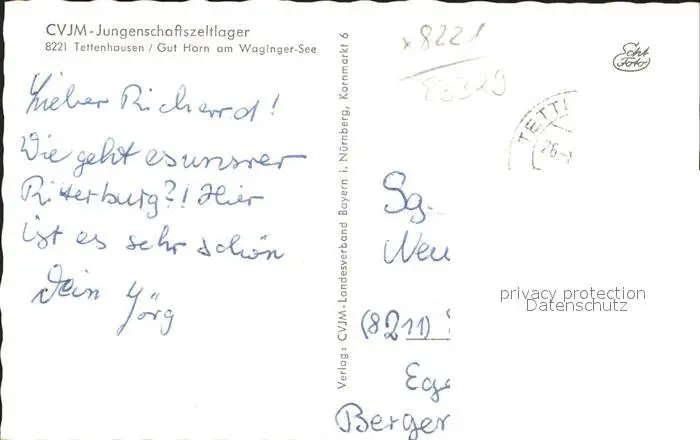 CVJM-Jungenschaftszeltlager
8221 Tettenhausen / Gut Horn am Waginger-See
Lieber Richard!
Wie geht es unsrer
Ritterburg?! Hier
ist es sehr schön
Dein Jörg
Verlag: CVJM-Landesverband Bayern i. Nürnberg, Kornmarkt 6
x8221
Echt
Foto
TETTI
26.
Sg.
Neu
(8211)
Ege
Berger
privacy protection
Datenschutz